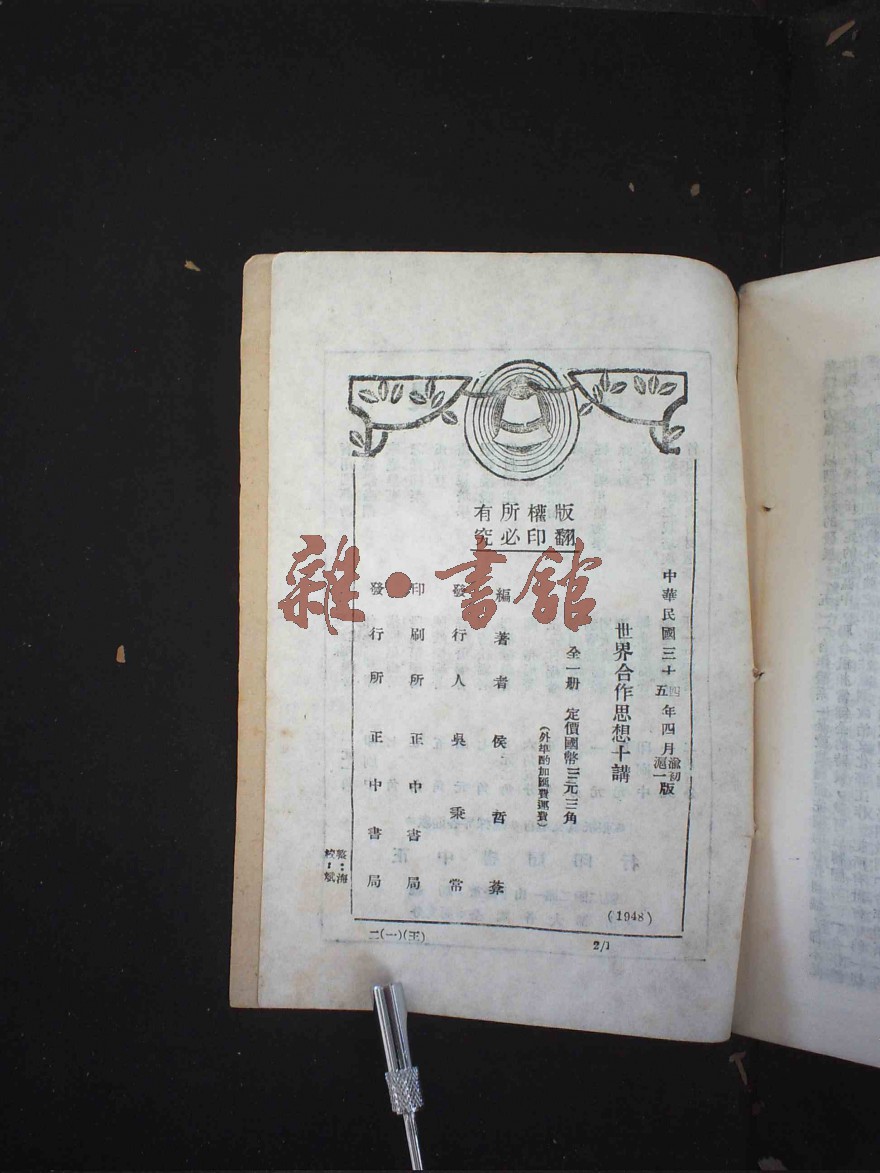 版權所有
翻印必究
中華民國三十四年四月渝初版
五 滬一
世界合作思想十講
全一册 定價國幣三元三角
(外埠酌加匯費運費)
編著者 侯哲葊
發行人 吳秉常
印刷所 正中書局
發行所 正中書局
(1948)
2/1
二(一)(王)
雜·書館